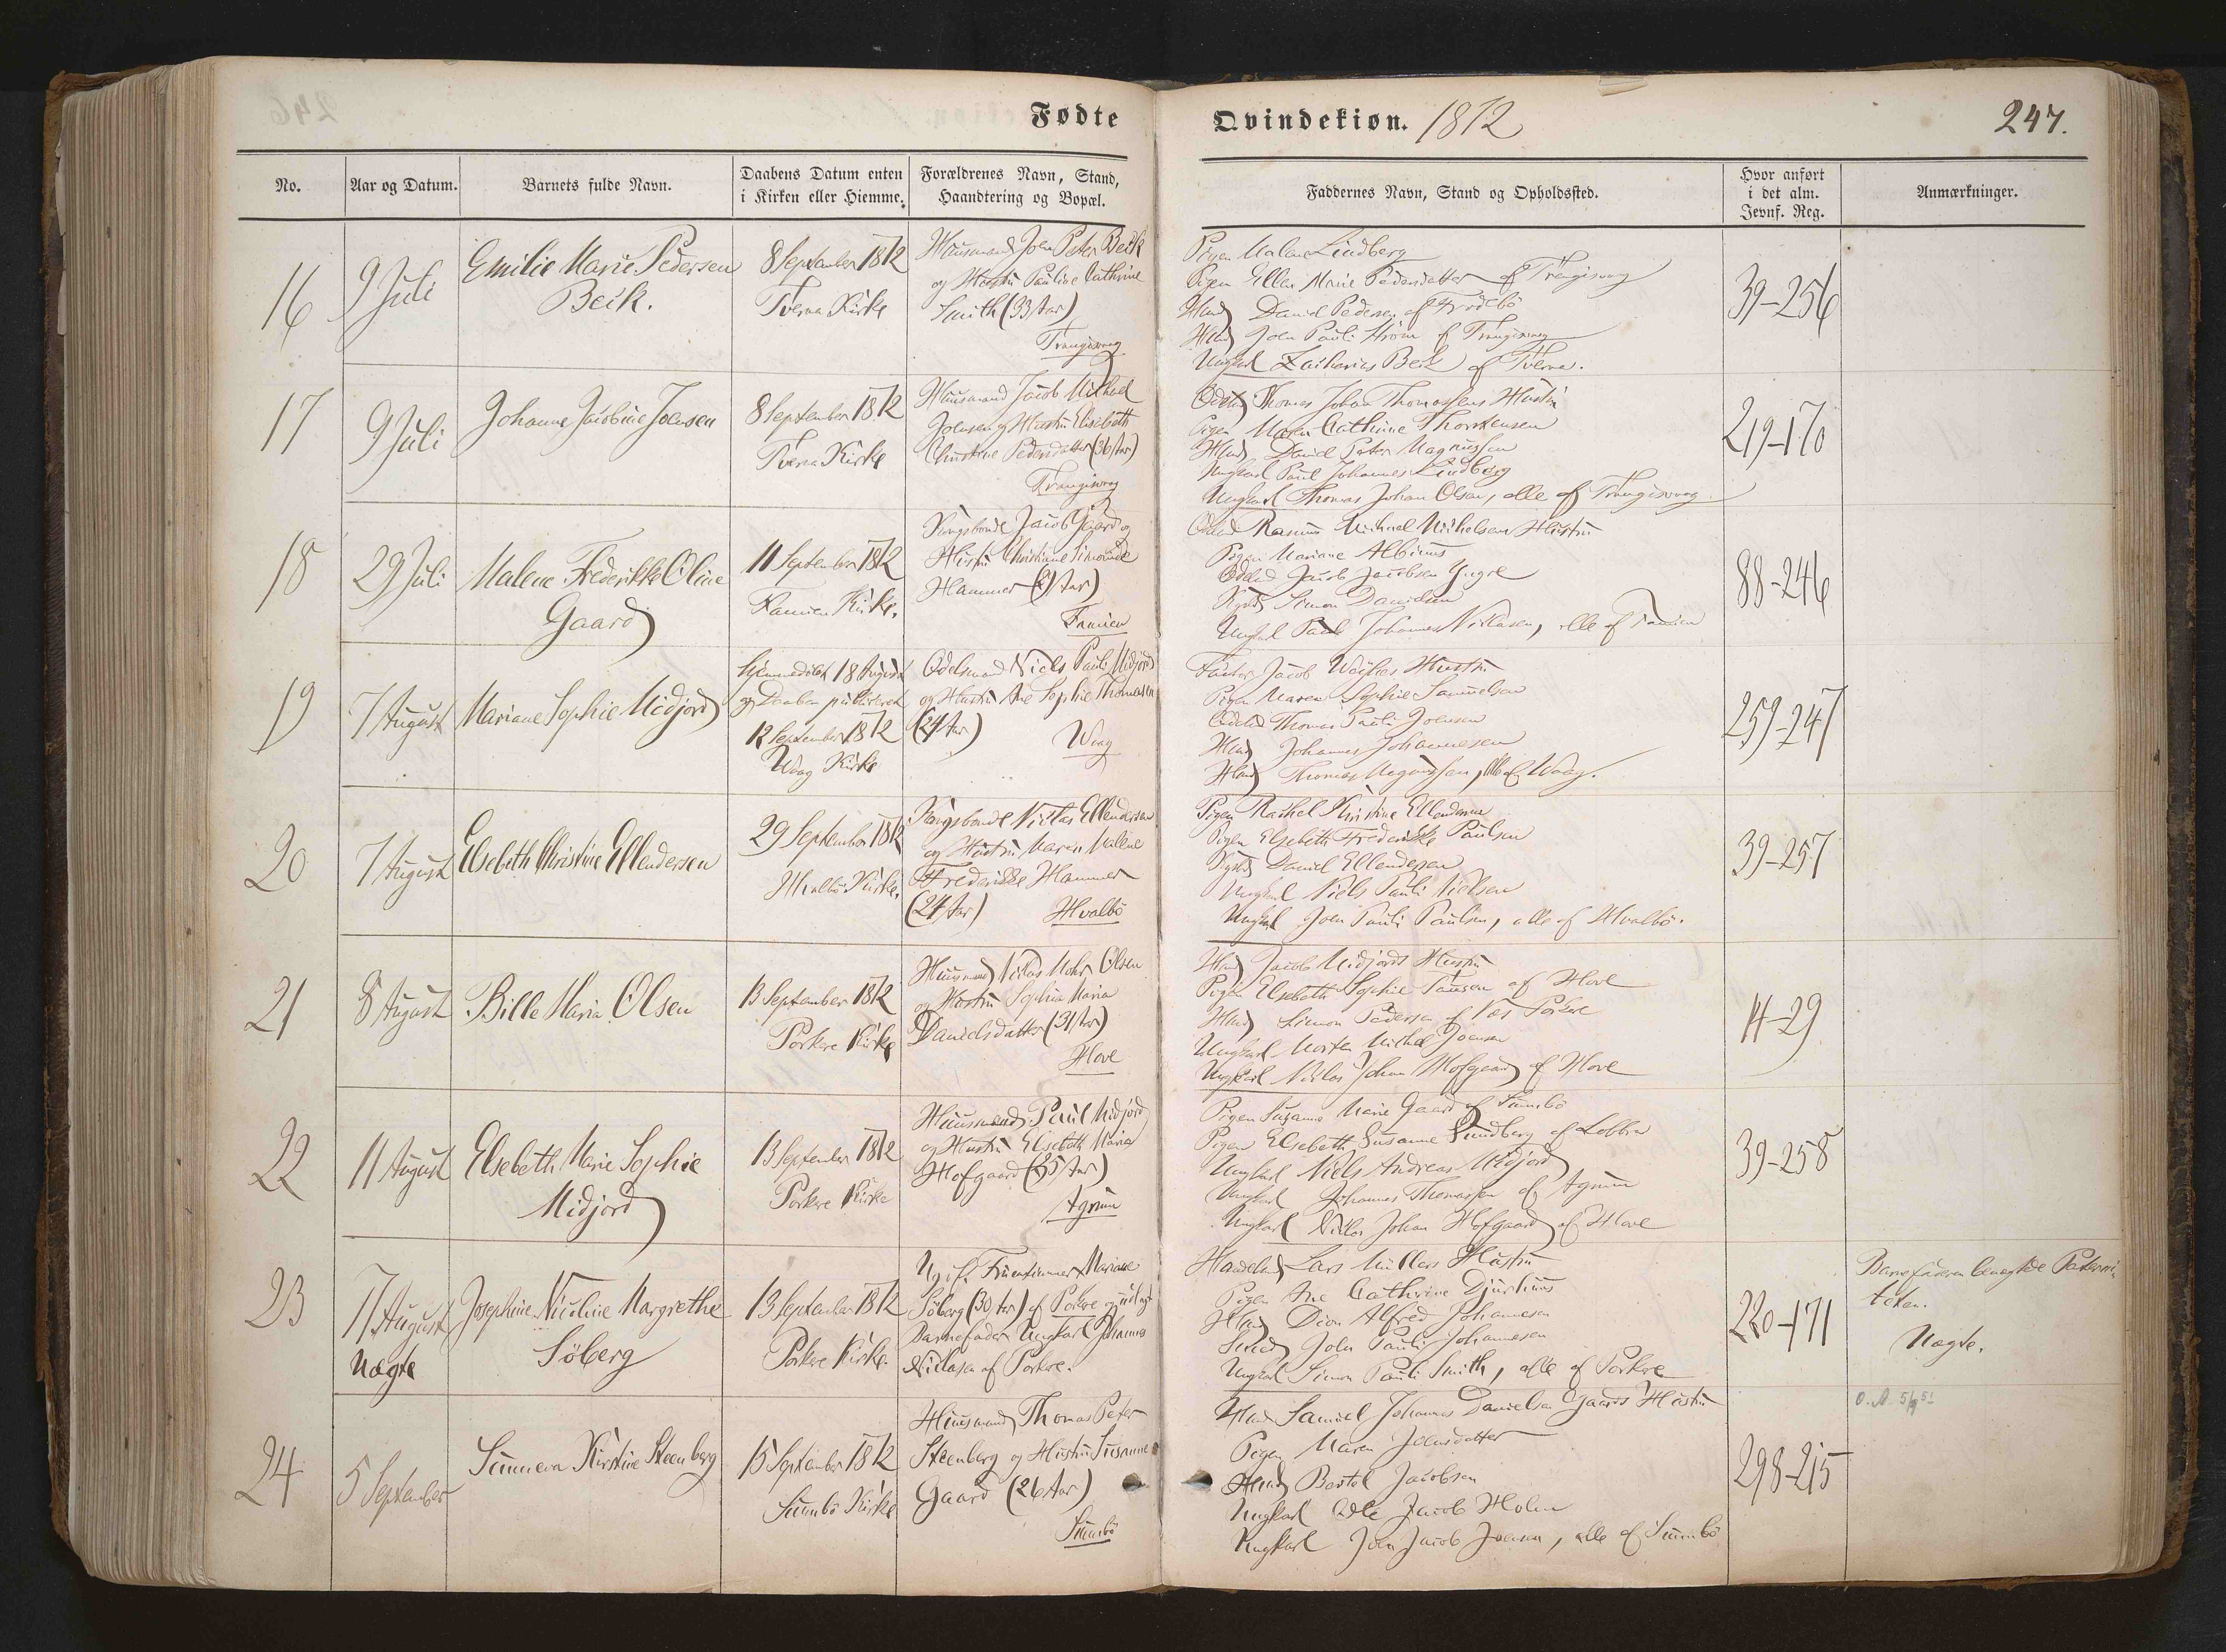 Fødte
Qvindekiøn. 1872
247.
No.
Aar og Datum.
Barnets fulde Navn.
Daabens Datum enten
i Kirken eller Hiemme.
Forældrenes Navn, Stand,
Haandtering og Bopæl.
Faddernes Navn, Stand og Opholdssted.
Hvor anført
i det alm.
Jevnf. Reg.
Anmærkninger.
16
9 Juli
Emilie Marie Pedersen
Beck.
8 September 1872
Tveraa Kirke
Huusmand Joen Peter Beck
og Hustru Pauline Cathrine
Smith (33 Aar)
Trangisvaag
Pigen Malene Lindberg
Pigen Ellen Marie Pedersdatter af Trangisvaag
Hmd Daniel Pedersen af Frodebö
Hmd Joen Pauli Ström af Trangisvaag
Ungkarl Zacharias Beck af Tveraa.
39-256
17
9 Juli
Johanne Jacobine Joensen
8 September 1872
Tveraa Kirke
Huusmand Jacob Michael
Joensen og Hustru Elisabeth
Christine Pedersdatter (36 Aar)
Trangisvaag
Odelsmd Thomas Johan Thomassens Hustru
Pigen Maren Cathrine Thorstensen
Hmd Daniel Peter Magnussen
Ungkarl Poul Johannes Lindberg
Ungkarl Thomas Johan Olsen, alle af Trangisvaag
219-170
18
29 Juli
Malene Frederikke Oline
Gaard
11 September 1872
Famien Kirke.
Kongsbonde Jacob Gaard og
Hustru Christiane Simonine
Hammer
Famien
Odelsmd Rasmus Michael Michelsens Hustru
Pigen Mariane Albinus
Odelsmd Jacob Jacobsen Yngre
Simon Davidsen
Ungkarl Paul Johannes Niclasen, alle af Famien
88-246
19
7 August
Mariane Sophie Midjord
hjemmedöbt 18 August
og Daaben publiceret
12 September 1872
Waag Kirke
Odelsmand Niels Pauli Midjord
og Hustru Ane Sophie Thomasen
(24 Aar)
Waag
Jacob Hustru
Pigen Maren Sophie Samuelsen
Odelsmd Thomas Pauli Joensen
Hmd Johannes Johannesen
Hmd Thomas Magnussen, alle af Waag.
259-247
20
7 August
Elsebeth Christine Ellendersen
29 September 1872
Hvalbö Kirke.
Kongsbonde Niclas Ellendersen
og Hustru Maren Malene
Frederikke Hammer
(24 Aar)
Hvalbö
Pigen Rachel Kristine Ellendersen
Pigen Elsebeth Frederikke Paulsen
Daniel Ellendersen
Ungkarl Niels Pauli Nielsen
Ungkarl Joen Pauli Paulsen, alle af Hvalbö.
39-257
21
8 August
Bille Maria Olsen
13 September 1872
Porkere Kirke
Huusmand Niclas Mohr Olsen
og Hustru Sophia Maria
Danielsdatter (31 Aar)
Hove
Hmd Jacob Midjords Hustru
Pigen Elsebeth Sophie af Hove
Hmd Simon Pedersen af Næs Porkere
Ungkarl Morten Michael Joensen
Ungkarl Niclas Johan Hofgaard af Hove
14-29
22
11 August
Elsebeth Marie Sophie
Midjord
13 September 1872
Porkere Kirke
Huusmand Paul Midjord
og Hustru Elsebeth Maria
Hofgaard (35 Aar)
Agrum
Pigen Susanne Marie Gaard af Sumbö
Pigen Elsebeth Susanne Lundberg af Lobbra
Ungkarl Niels Andreas Midjord
Ungkarl Johannes Thomassen af Agrum
Ungkarl Niclas Johan Hofgaard af Hove
39-258
23
11 August
Uægte
Josephine Nicoline Margrethe
Söberg
13 September 1872
Porkere Kirke.
Ugift Fruentimmer Mariane
Söberg (30 Aar) af Porkere og udlagt
Barnefader Ungkarl Johannes
Niclasen af Porkere.
Handelsmd Lars Müllers Hustru
Pigen Ane Cathrine Djurhuus
Hmd Dion Alfred Johannesen
Joen Pauli Johannesen
Ungkarl Simon Pauli Smith, alle af Porkere
220-171
Barnefaderen benægtede Paterni-
teten.
Uægte.
24
5 September
Sunneva Kirstine Steenberg
15 September 1872
Sumbö Kirke
Huusmand Thomas Peter
Steenberg og Hustru Susanne
Gaard (26 Aar)
Sumbö
Hmd Samuel Johannes Danielsen Gaards Hustru
Pigen Maren Joensdatter
Hmd Bertel Jacobsen
Ungkarl Ole Jacob Holm
Ungkarl Joen Jacob Joensen, alle af Sumbö
298-215